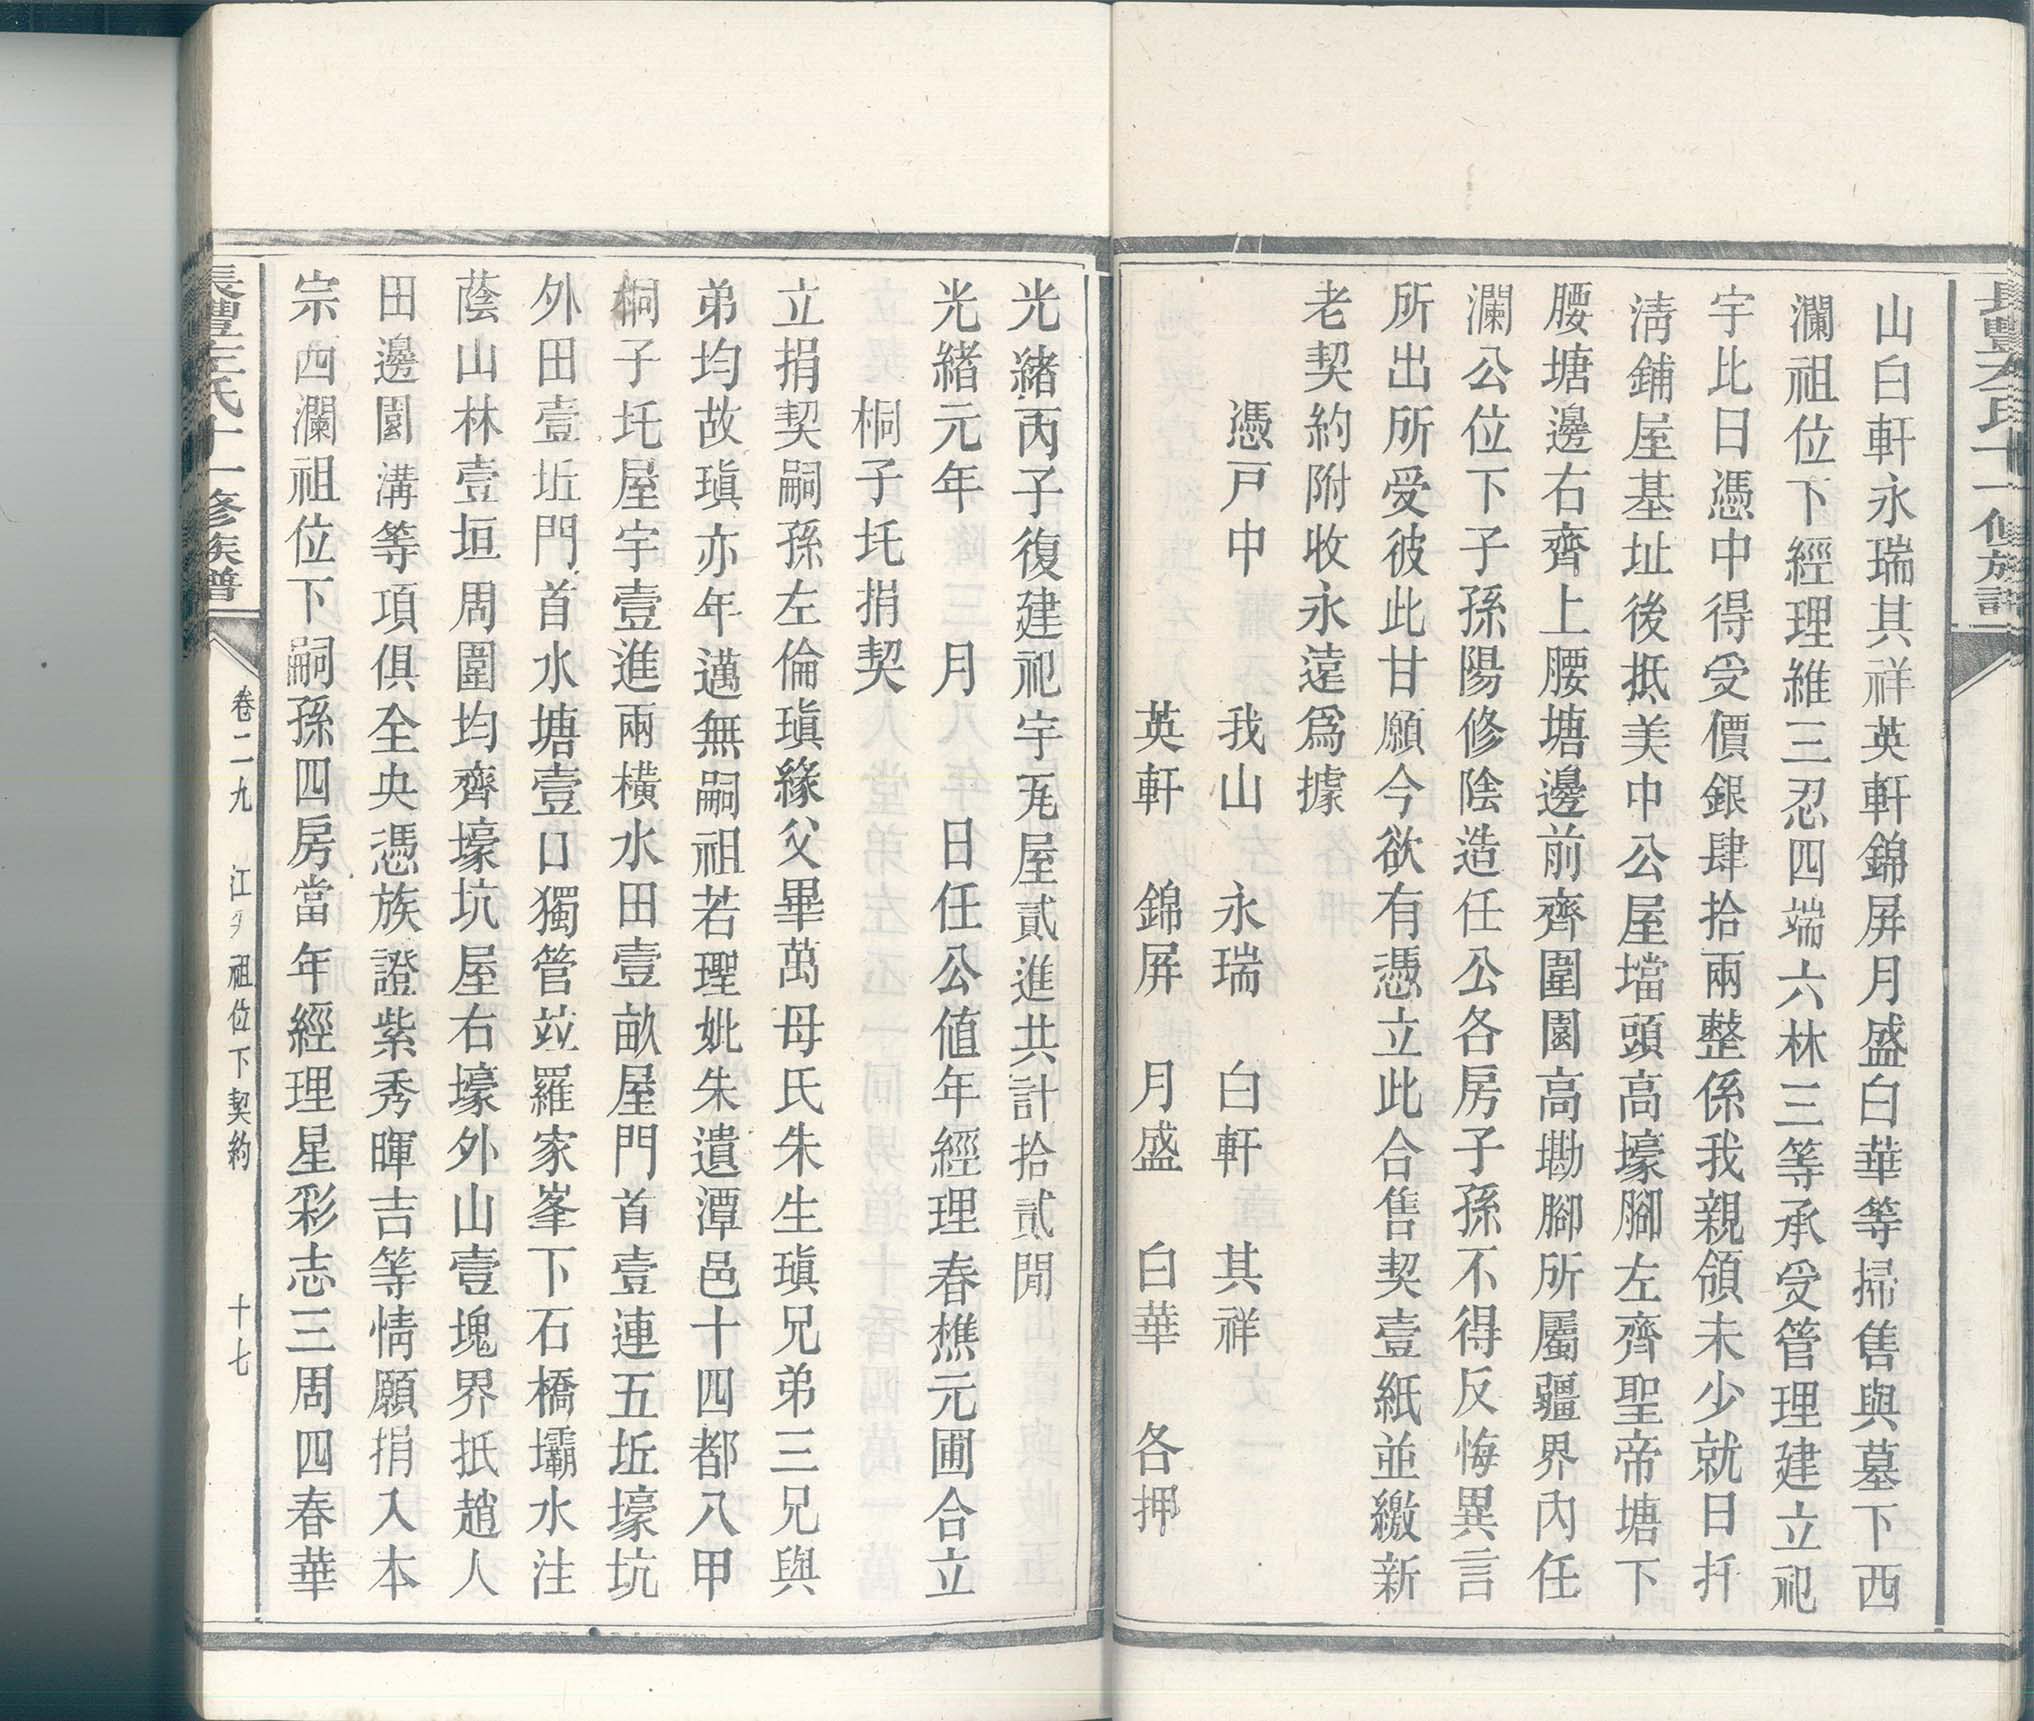 山白軒永瑞其祥英軒錦屏月盛白華等掃售與墓下西
瀾祖位下經理維三忍四端六林三等承受管理建立祀
宇比日憑中得受價銀肆拾兩整係我親領未少就日扦
清鋪屋基址後抵美中公屋壋頭高壕腳左齊聖帝塘下
腰塘邊右齊上腰塘邊前齊圍園高墈腳所屬疆界內任
瀾公位下子孫陽修陰造任公各房子孫不得反悔異言
所出所受彼此甘願今欲有憑立此合售契壹紙並繳新
老契約附收永遠爲據
憑戸中　我山　永瑞　白軒　其祥
英軒　錦屏　月盛　白華　各押
光緒丙子復建祀宇瓦屋貳進共計拾貳間
光緒元年　月　日任公值年經理春樵元圃合立
桐子坉捐契
立捐契嗣孫左倫瑱緣父畢萬母氏朱生瑱兄弟三兄與
弟均故瑱亦年邁無嗣祖若理妣朱遺潭邑十四都八甲
桐子坉屋宇壹進兩橫水田壹畝屋門首壹連五坵壕坑
外田壹坵門首水塘壹口獨管竝羅家峯下石橋壩水注
蔭山林壹垣周圍均齊壕坑屋右壕外山壹塊界抵趙人
田邊園溝等項俱全央憑族證紫秀暉吉等情願捐入本
宗西瀾祖位下嗣孫四房當年經理星彩志三周四春華
長豊左氏十一修族譜
卷二九　江　祖位下契約　十七